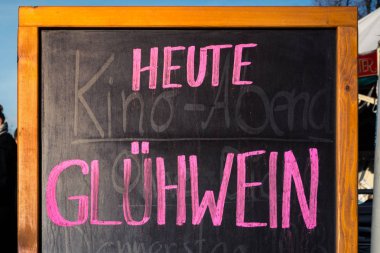 HEUTE
Kino-Abend
GLÜHWEIN